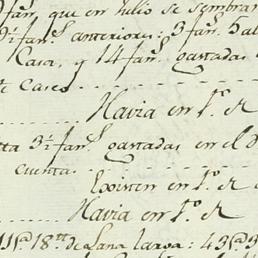 fan.s que en Julio se sembrar
9½ fan.s anteriores: 3 fan.s 5 al
Casa, y 14 fan.s gastadas
de Caseo
Havia en 1.º de
ta 3½ fan.s gastadas en el D
cuenta
Existen en 1.º de
Havia en 1.º de
11@ 18 tt de Lana larga: 43@ 9